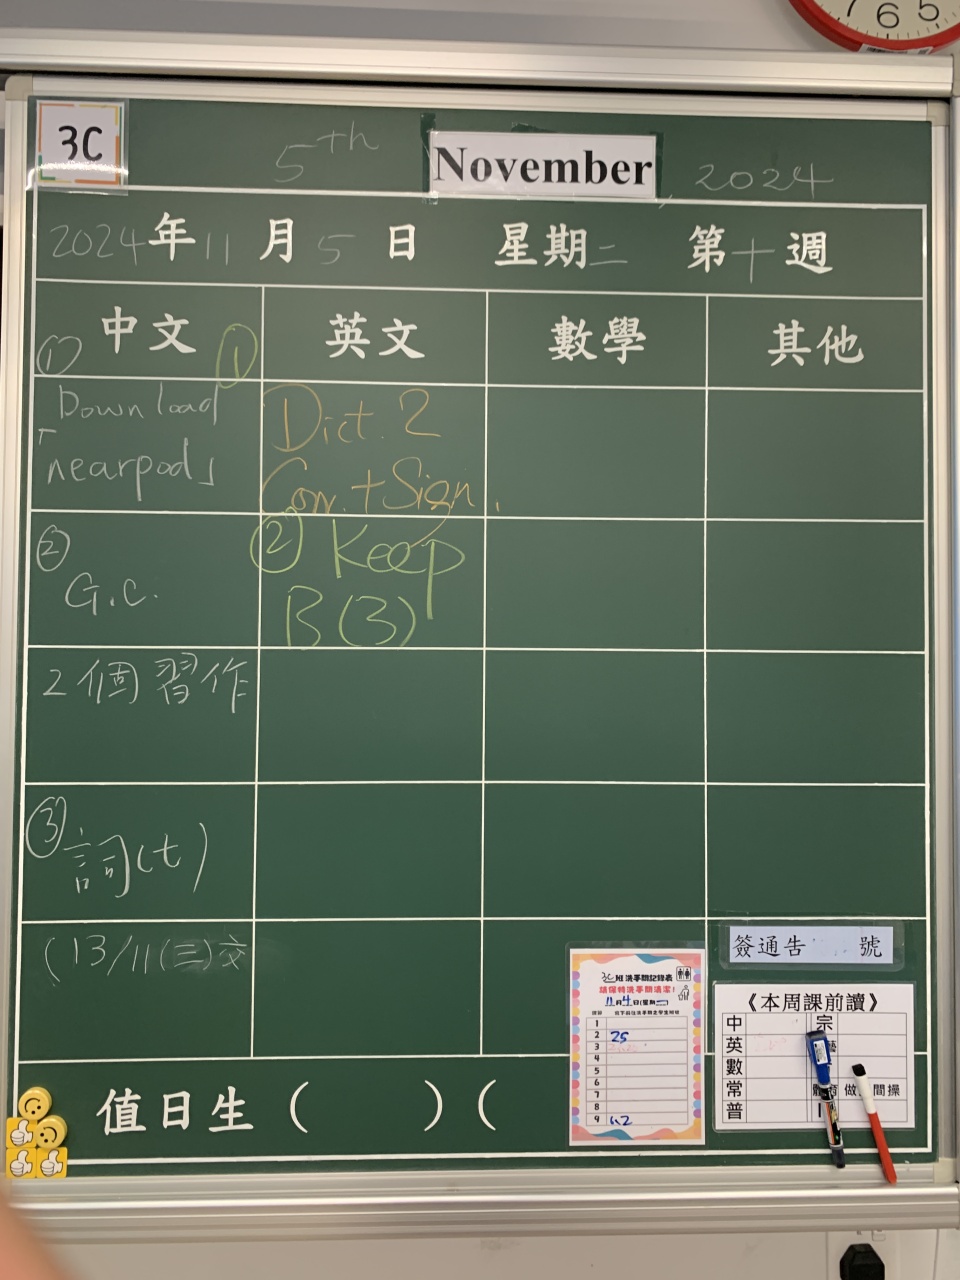 7 6 5
3C
5th November, 2024
2024年11月5日 星期二 第十週
中文 英文 數學 其他
① Download
「nearpod」
① Dict. 2
Corr. + Sign.
② G.C.
② Keep
B(3)
2個習作
③ 詞(七)
(13/11(三)交
簽通告 號
《本周課前讀》
中 宗
英
數
常 做 間操
普
3C班洗手間記錄表
請保持洗手間清潔!
11月4日(星期一)
1
2 25
3
4
5
6
7
8
9 1,2
值日生( )(